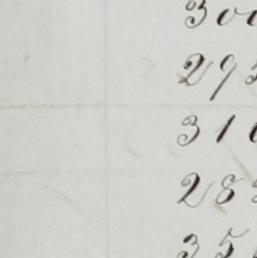 30
29
31
28
35